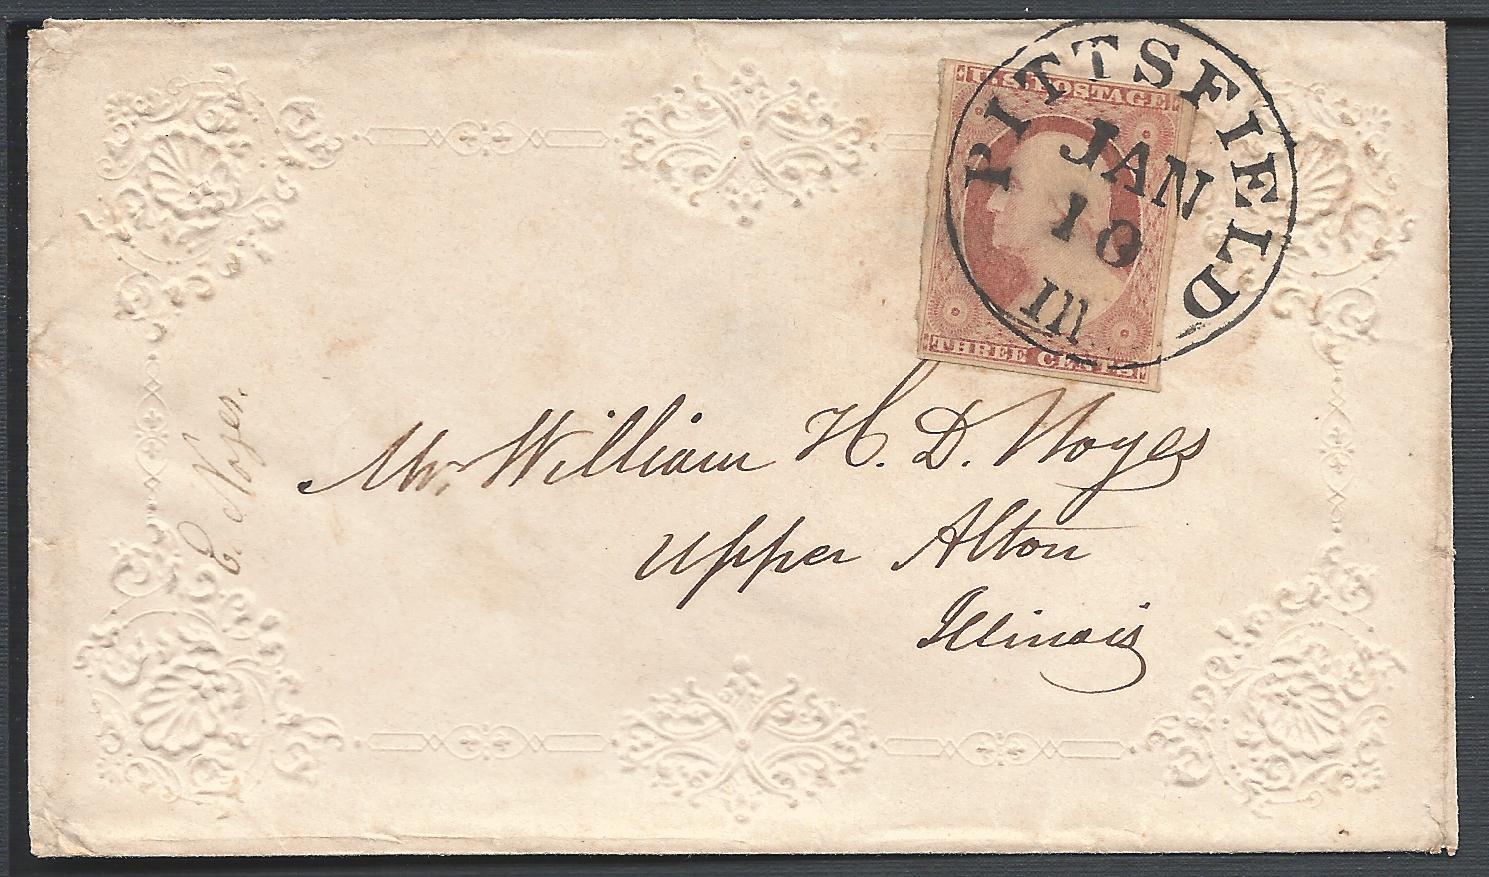 U.S. POSTAGE
PITTSFIELD
JAN
10
Ill
THREE CENTS
E. Noyes.
Mr. William H. D. Noyes
Upper Alton
Illinois